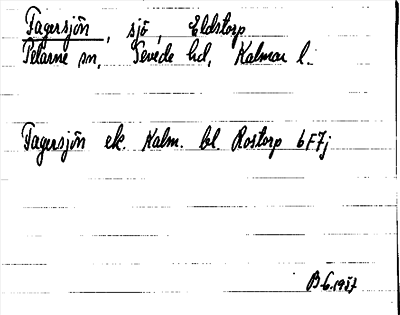 Fagersjön, sjö, Eldstorp
Pelarne sn, Sevede hd, Kalmar l.
Fagersjön ek. Kalm. bl. Rostorp 6F7j
B.G. 1937